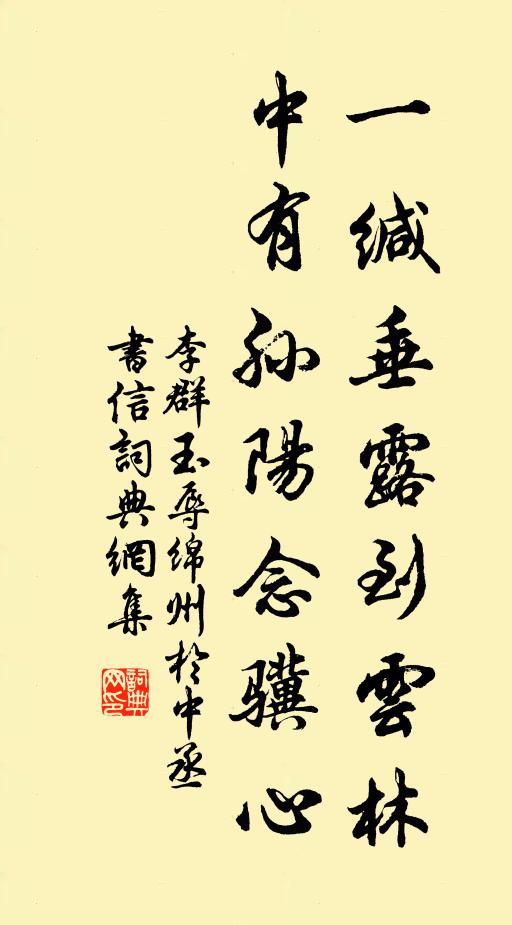 一緘垂露到雲林
中有孙陽念骥心
李群玉辱绵州於中丞
書信詞典網集
詞典
网印